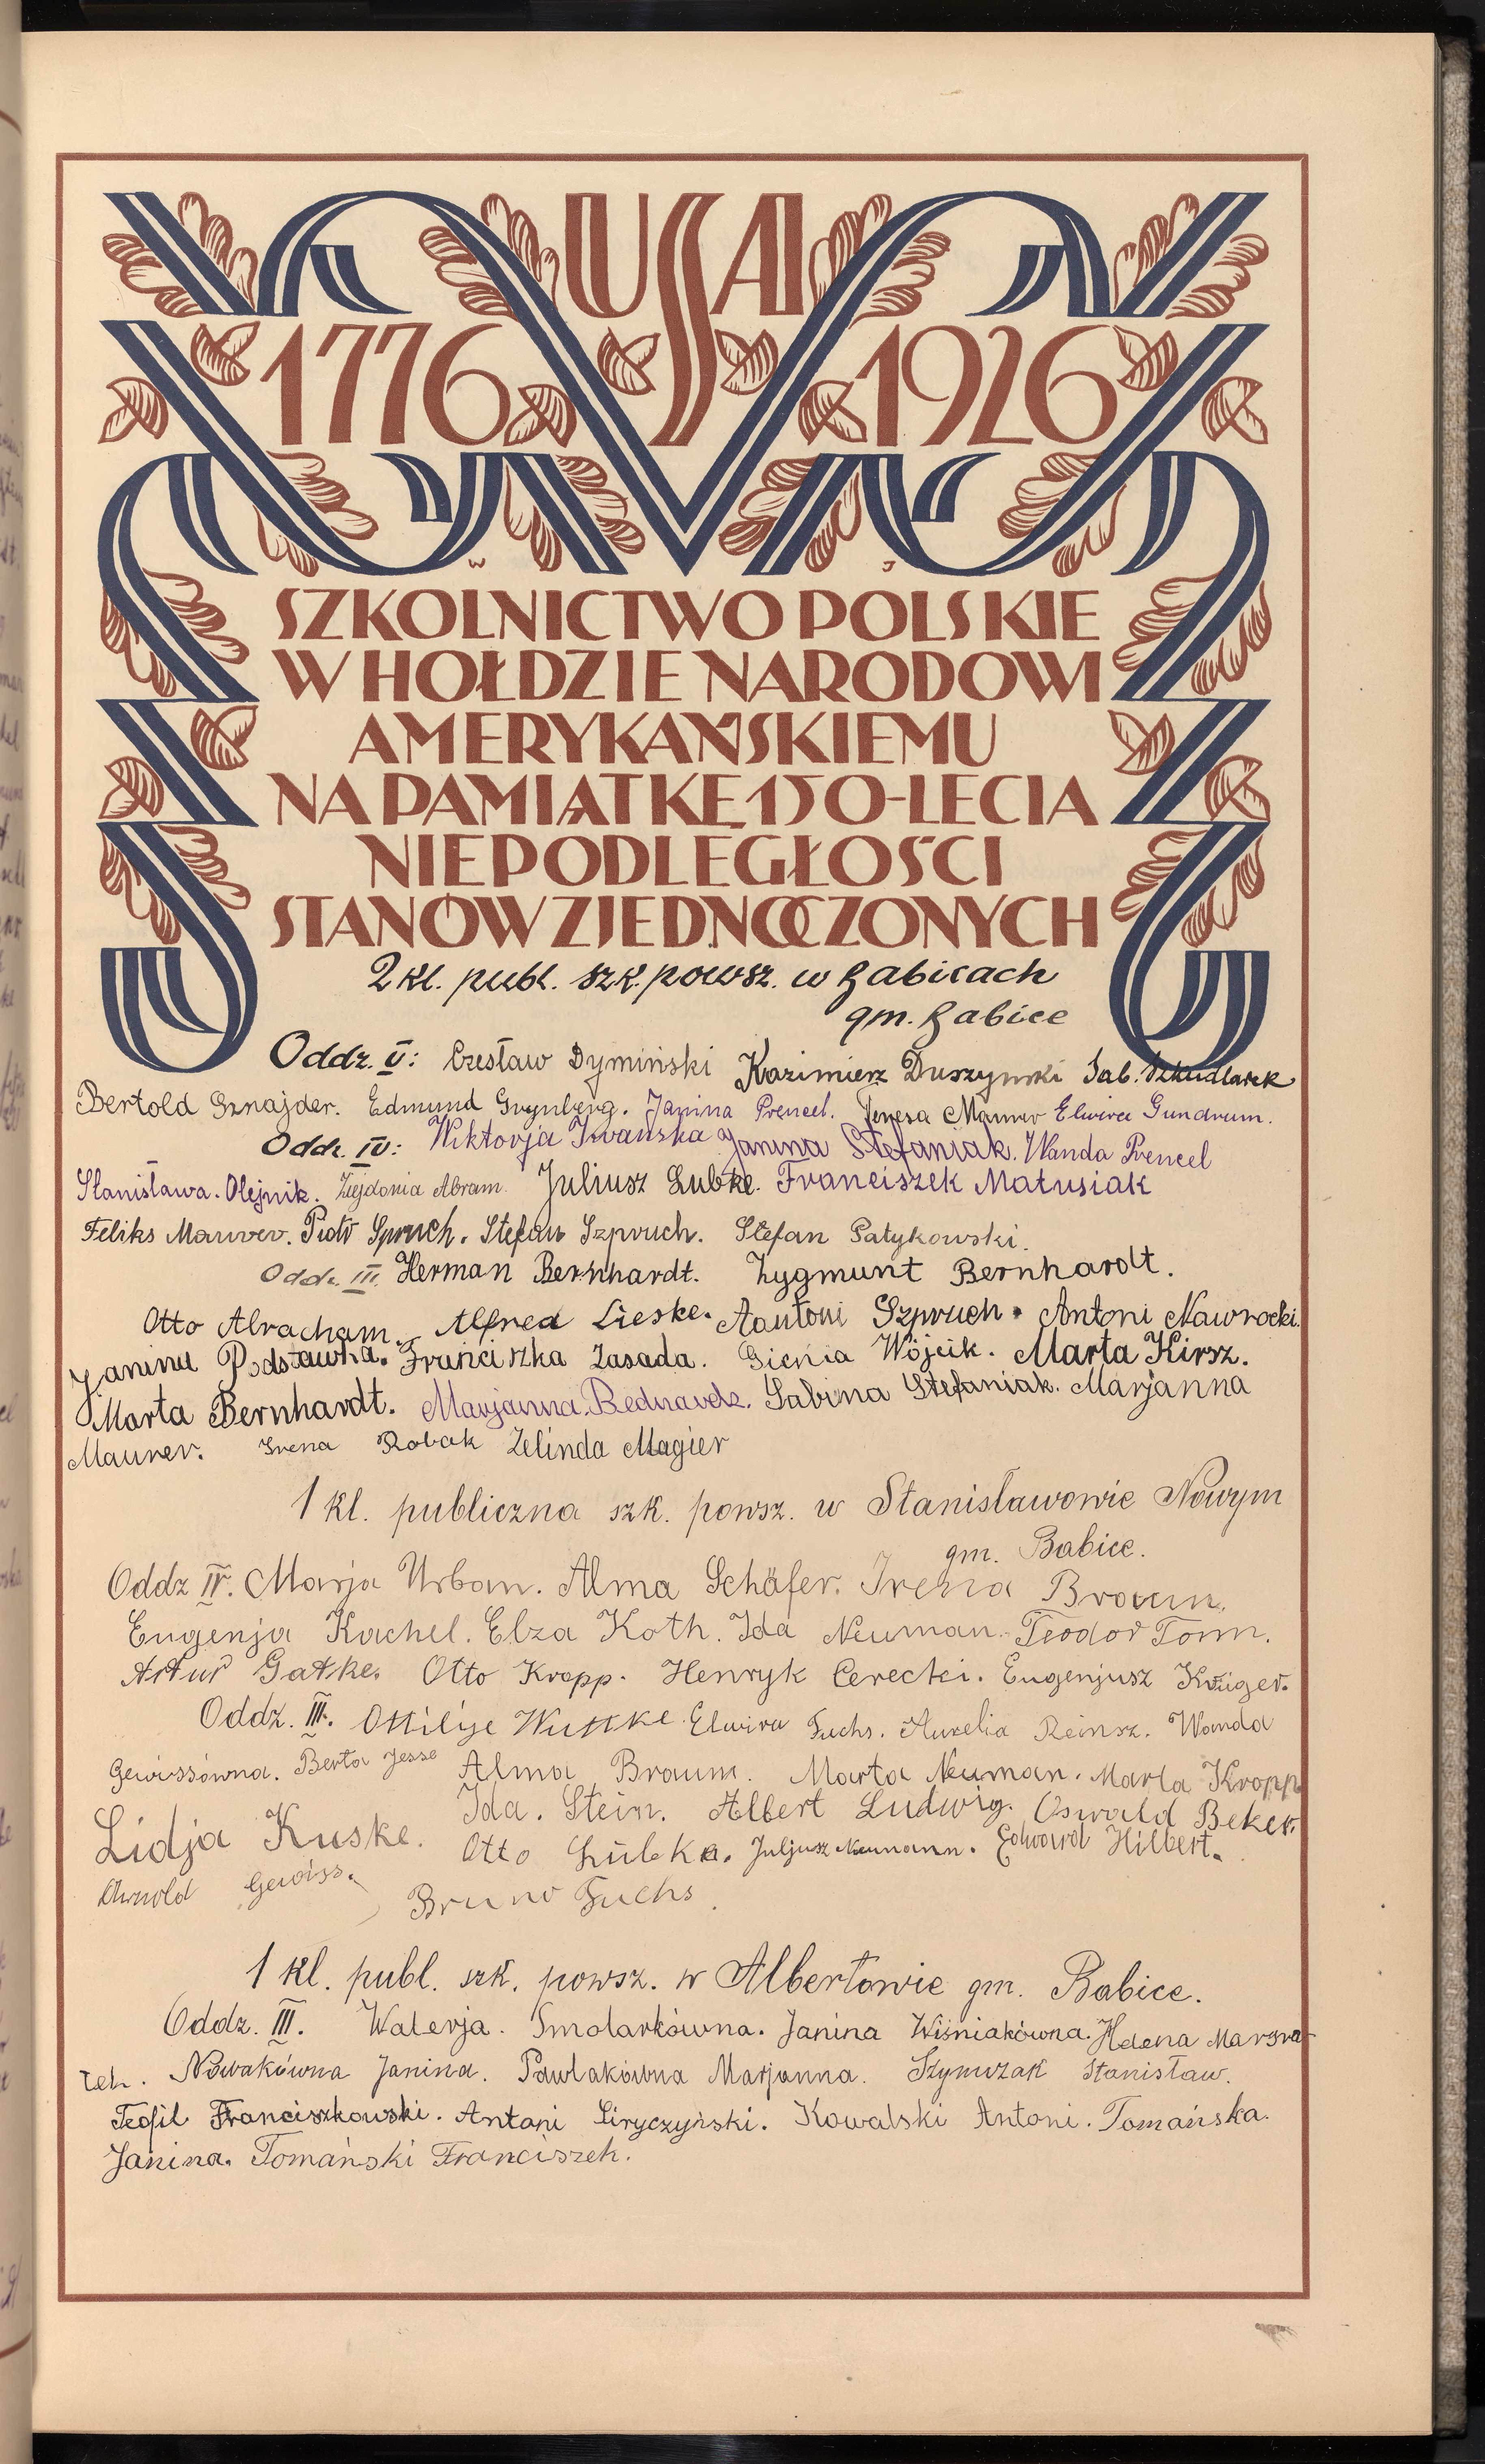 USA
1776 1926
W J
SZKOLNICTWO POLSKIE
W HOŁDZIE NARODOWI
AMERYKAŃSKIEMU
NA PAMIĄTKĘ 150-LECIA
NIEPODLEGŁOŚCI
STANÓW ZJEDNOCZONYCH
2 kl. publ. szk. powsz. w Babicach
gm. Babice
Oddz. V: Czesław Dymiński Kazimierz Duszyński Sab. Szkudlarek
Bertold Sznajder. Edmund Grynberg. Janina Prencel. Teresa Maurer Elwira Gundrum.
Oddz. IV: Wiktorja Iwańska Janina Stefaniak. Wanda Prencel
Stanisława. Olejnik. Abram. Juliusz Lubke. Franciszek Matusiak
Feliks Maurer. Piotr Spruch. Stefan Szpruch. Stefan Patykowski.
Oddz. III. Herman Bernhardt. Zygmunt Bernhardt.
Otto Abracham. Alfred Lieske. Aantoni Szpruch. Antoni Nawrocki.
Janina Podstawna. Franciszka Zasada. Gienia Wójcik. Marta Kirsz.
Marta Bernhardt. Marjanna. Bednarek. Sabina Stefaniak. Marjanna
Maurer. Irena Robak Zelinda Magier
1 kl. publiczna szk. powsz. w Stanisławowie Nowym
gm. Babice.
Oddz IV. Marja Urban. Alma Schäfer. Irena Braun.
Eugenja Kachel. Elza Koth. Ida Neuman. Teodor Tonn.
Artur Gatke. Otto Kropp. Henryk Cerecki. Eugenjusz Krüger.
Oddz. III. Ottilje Wuttke. Elwira Fuchs. Aurelia Reinsz. Wanda
Gewissówna. Berta Jesse Alma Braum. Marta Neuman. Marta Kropp
Lidja Kuske. Ida. Stein. Albert Ludwig. Oswald Beker.
Otto Lübke. Juljusz Neumann. Edward Hilbert.
Arnold Gewiss. Bruno Fuchs.
1 kl. publ. szk. powsz. w Albertowie gm. Babice.
Oddz. III. Walerja. Smolarkówna. Janina Wiśniakówna. Helena Marsza-
łek. Nowakówna Janina. Pawlakówna Marjanna. Szymczak Stanisław.
Teofil Franciszkowski. Antoni Siryczyński. Kowalski Antoni. Tomańska.
Janina. Tomański Franciszek.